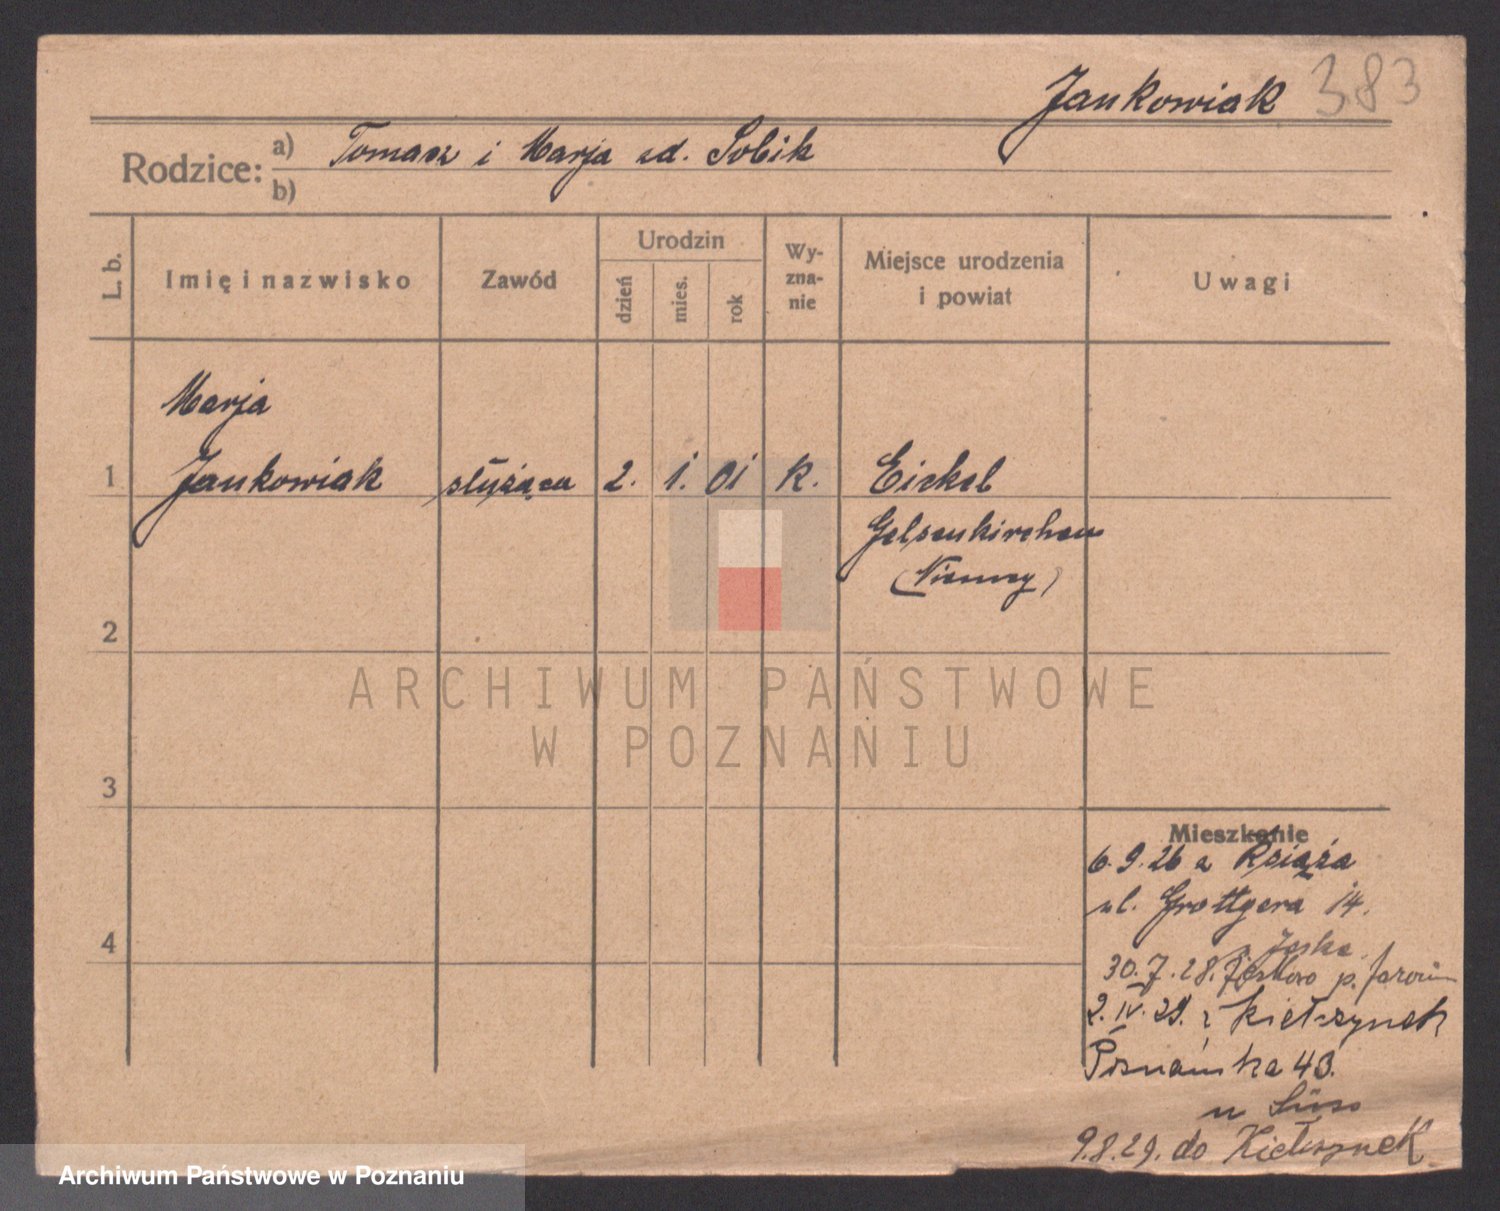 Jankowiak 383
Rodzice: a) Tomasz i Marja zd. Sobik
b)
L. b.
Imię i nazwisko
Zawód
Urodzin
dzień
mies.
rok
Wy-
zna-
nie
Miejsce urodzenia
i powiat
Uwagi
Marja
1 Jankowiak służąca 2. 1. 01 k. Eickel
Gelsenkirchen
(Niemcy)
2
3
4
ARCHIWUM PAŃSTWOWE
W POZNANIU
Mieszkanie
6.9.26 z Książa
ul. Grottgera 14.
30.7.28. p.
2.IV.29. z Kiełczynek
Poznańska 43.
u
9.8.29. do Kiełczynek
Archiwum Państwowe w Poznaniu